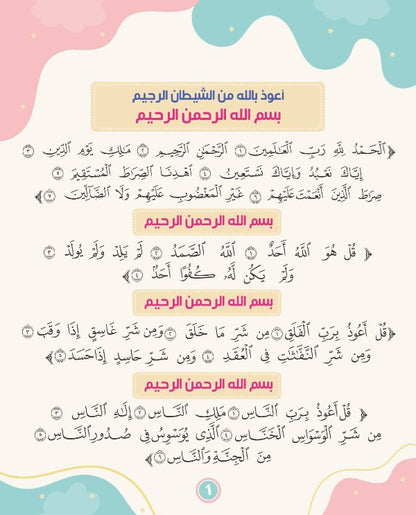 أعوذ بالله من الشيطان الرجيم
بسم الله الرحمن الرحيم
﴿ ٱلْحَمْدُ لِلَّهِ رَبِّ ٱلْعَـٰلَمِينَ ١ ٱلرَّحْمَـٰنِ ٱلرَّحِيمِ ٢ مَـٰلِكِ يَوْمِ ٱلدِّينِ ٣
إِيَّاكَ نَعْبُدُ وَإِيَّاكَ نَسْتَعِينُ ٤ ٱهْدِنَا ٱلصِّرَٰطَ ٱلْمُسْتَقِيمَ ٥
صِرَٰطَ ٱلَّذِينَ أَنْعَمْتَ عَلَيْهِمْ ٦ غَيْرِ ٱلْمَغْضُوبِ عَلَيْهِمْ وَلَا ٱلضَّآلِّينَ ٧ ﴾
بسم الله الرحمن الرحيم
﴿ قُلْ هُوَ ٱللَّهُ أَحَدٌ ١ ٱللَّهُ ٱلصَّمَدُ ٢ لَمْ يَلِدْ وَلَمْ يُولَدْ ٣
وَلَمْ يَكُن لَّهُۥ كُفُوًا أَحَدٌۢ ٤ ﴾
بسم الله الرحمن الرحيم
﴿ قُلْ أَعُوذُ بِرَبِّ ٱلْفَلَقِ ١ مِن شَرِّ مَا خَلَقَ ٢ وَمِن شَرِّ غَاسِقٍ إِذَا وَقَبَ ٣
وَمِن شَرِّ ٱلنَّفَّـٰثَـٰتِ فِى ٱلْعُقَدِ ٤ وَمِن شَرِّ حَاسِدٍ إِذَا حَسَدَ ٥ ﴾
بسم الله الرحمن الرحيم
﴿ قُلْ أَعُوذُ بِرَبِّ ٱلنَّاسِ ١ مَلِكِ ٱلنَّاسِ ٢ إِلَـٰهِ ٱلنَّاسِ ٣
مِن شَرِّ ٱلْوَسْوَاسِ ٱلْخَنَّاسِ ٤ ٱلَّذِى يُوَسْوِسُ فِى صُدُورِ ٱلنَّاسِ ٥
مِنَ ٱلْجِنَّةِ وَٱلنَّاسِ ٦ ﴾
1